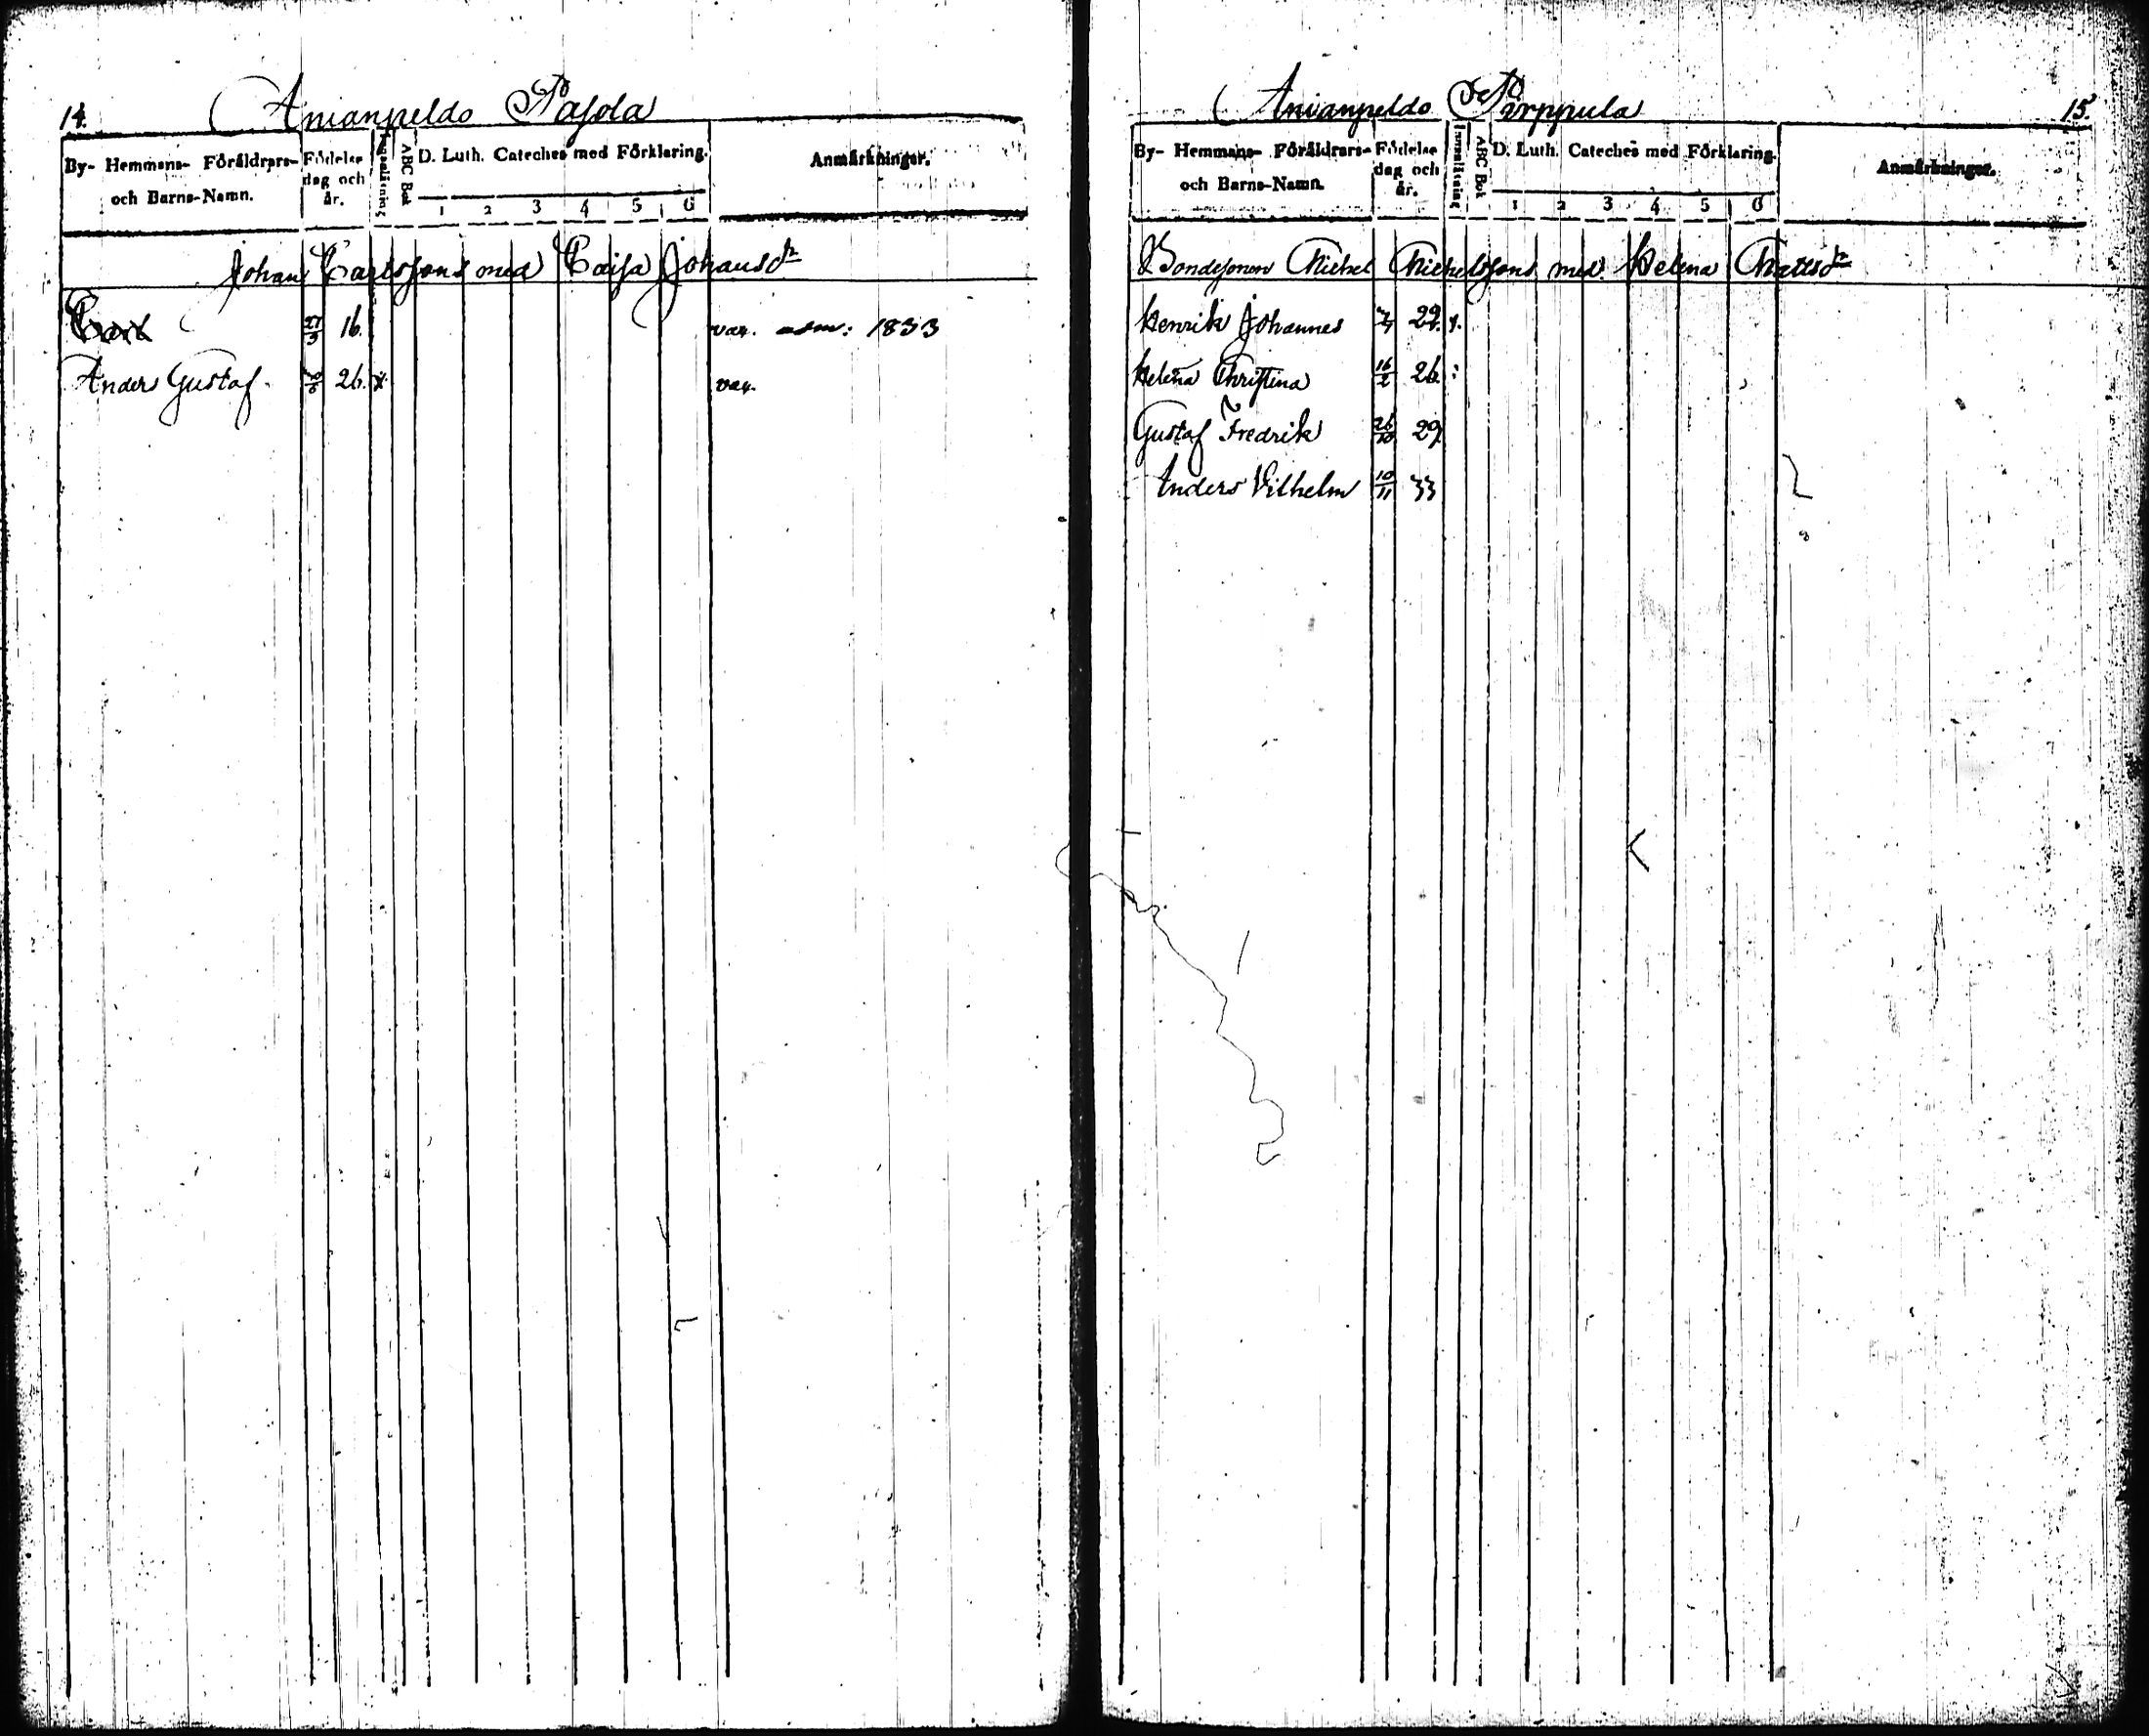 14.
Anianpeldo Pajola
By- Hemmans- Föräldrars- och Barns-Namn.
Födelse dag och år.
Innanläsning
ABC Bok
D. Luth. Cateches med Förklaring.
1 2 3 4 5 6
Anmärkningar.
Johan Carlssons med Caisa Johansdr
Carl 27/3 16. var. adm: 1833
Anders Gustaf. 26. x. var.
15.
Anianpeldo Pärppula
By- Hemmans- Föräldrars- och Barns-Namn.
Födelse dag och år.
Innanläsning
ABC Bok
D. Luth. Cateches med Förklaring.
1 2 3 4 5 6
Anmärkningar.
Bondesonen Michel Michelssons med Helena Mattsdr
Henrik Johannes
Helena Christina 16/2 26. :
Gustaf Fredrik 26/10 29.
Anders Vilhelm 10/11 33